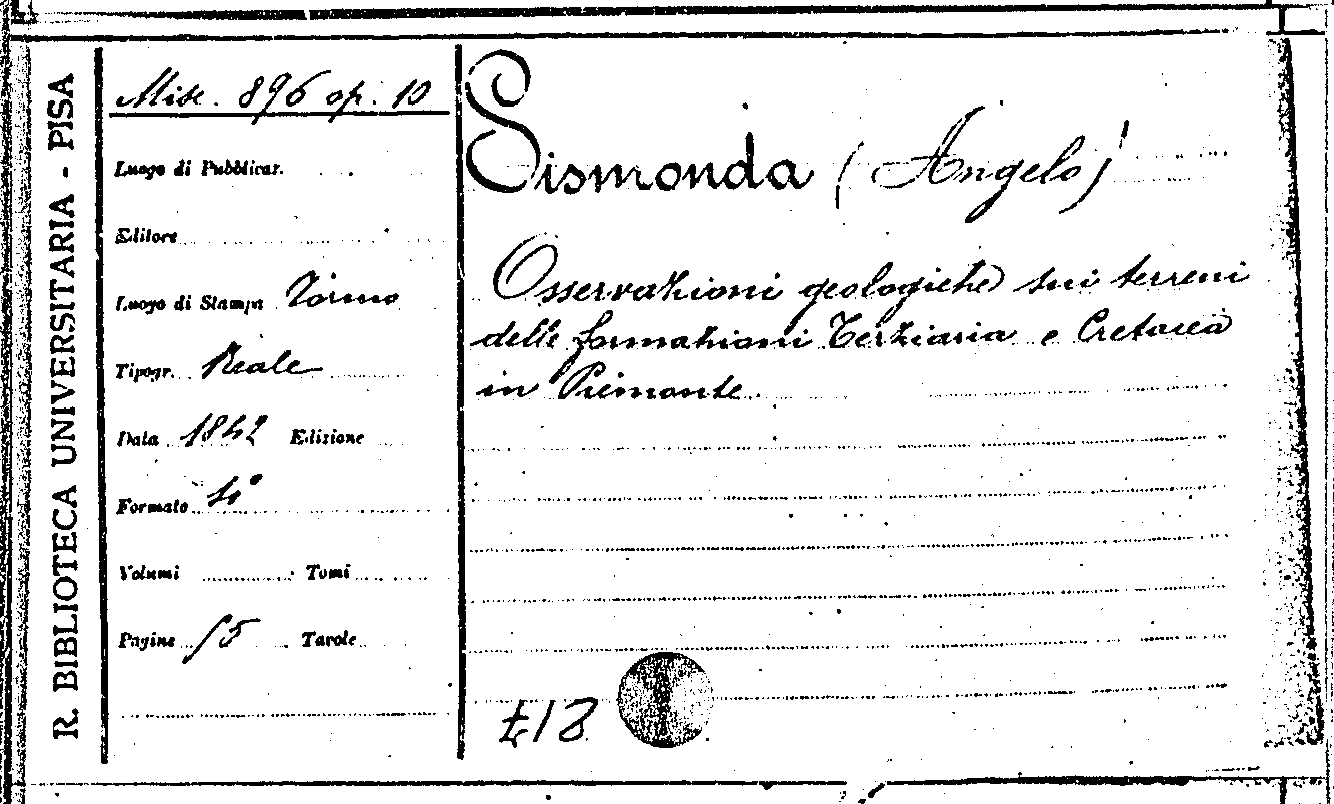 R. BIBLIOTECA UNIVERSITARIA - PISA
Misc. 896 op. 10
Luogo di Pubblicaz.
Editore
Luogo di Stampa Torino
Tipogr. Reale
Data 1842 Edizione
Formato 4°
Volumi Tomi
Pagine 15 Tavole
Sismonda (Angelo)
Osservazioni geologiche sui terreni
delle formazioni Terziaria e Cretacea
in Piemonte.